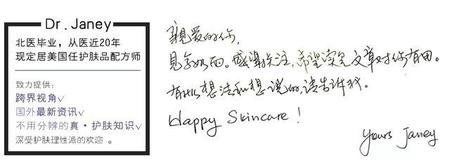 Dr. Janey
北医毕业，从医近20年
现定居美国任护肤品配方师
致力提供：
跨界视角√
国外最新资讯√
不用分辨的真·护肤知识√
深受护肤理性派的欢迎 。
亲爱的你，
见字如面。感谢关注，希望读完文章对你有用。
有什么想法和想说的，请告诉我。
Happy Skincare!
Yours Janey